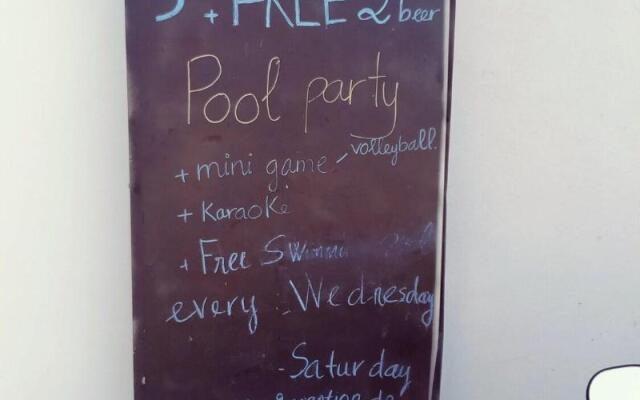 + FREE 2 beer
Pool party
+ mini game - volleyball.
+ Karaoke
+ Free
every : Wednesday
- Saturday